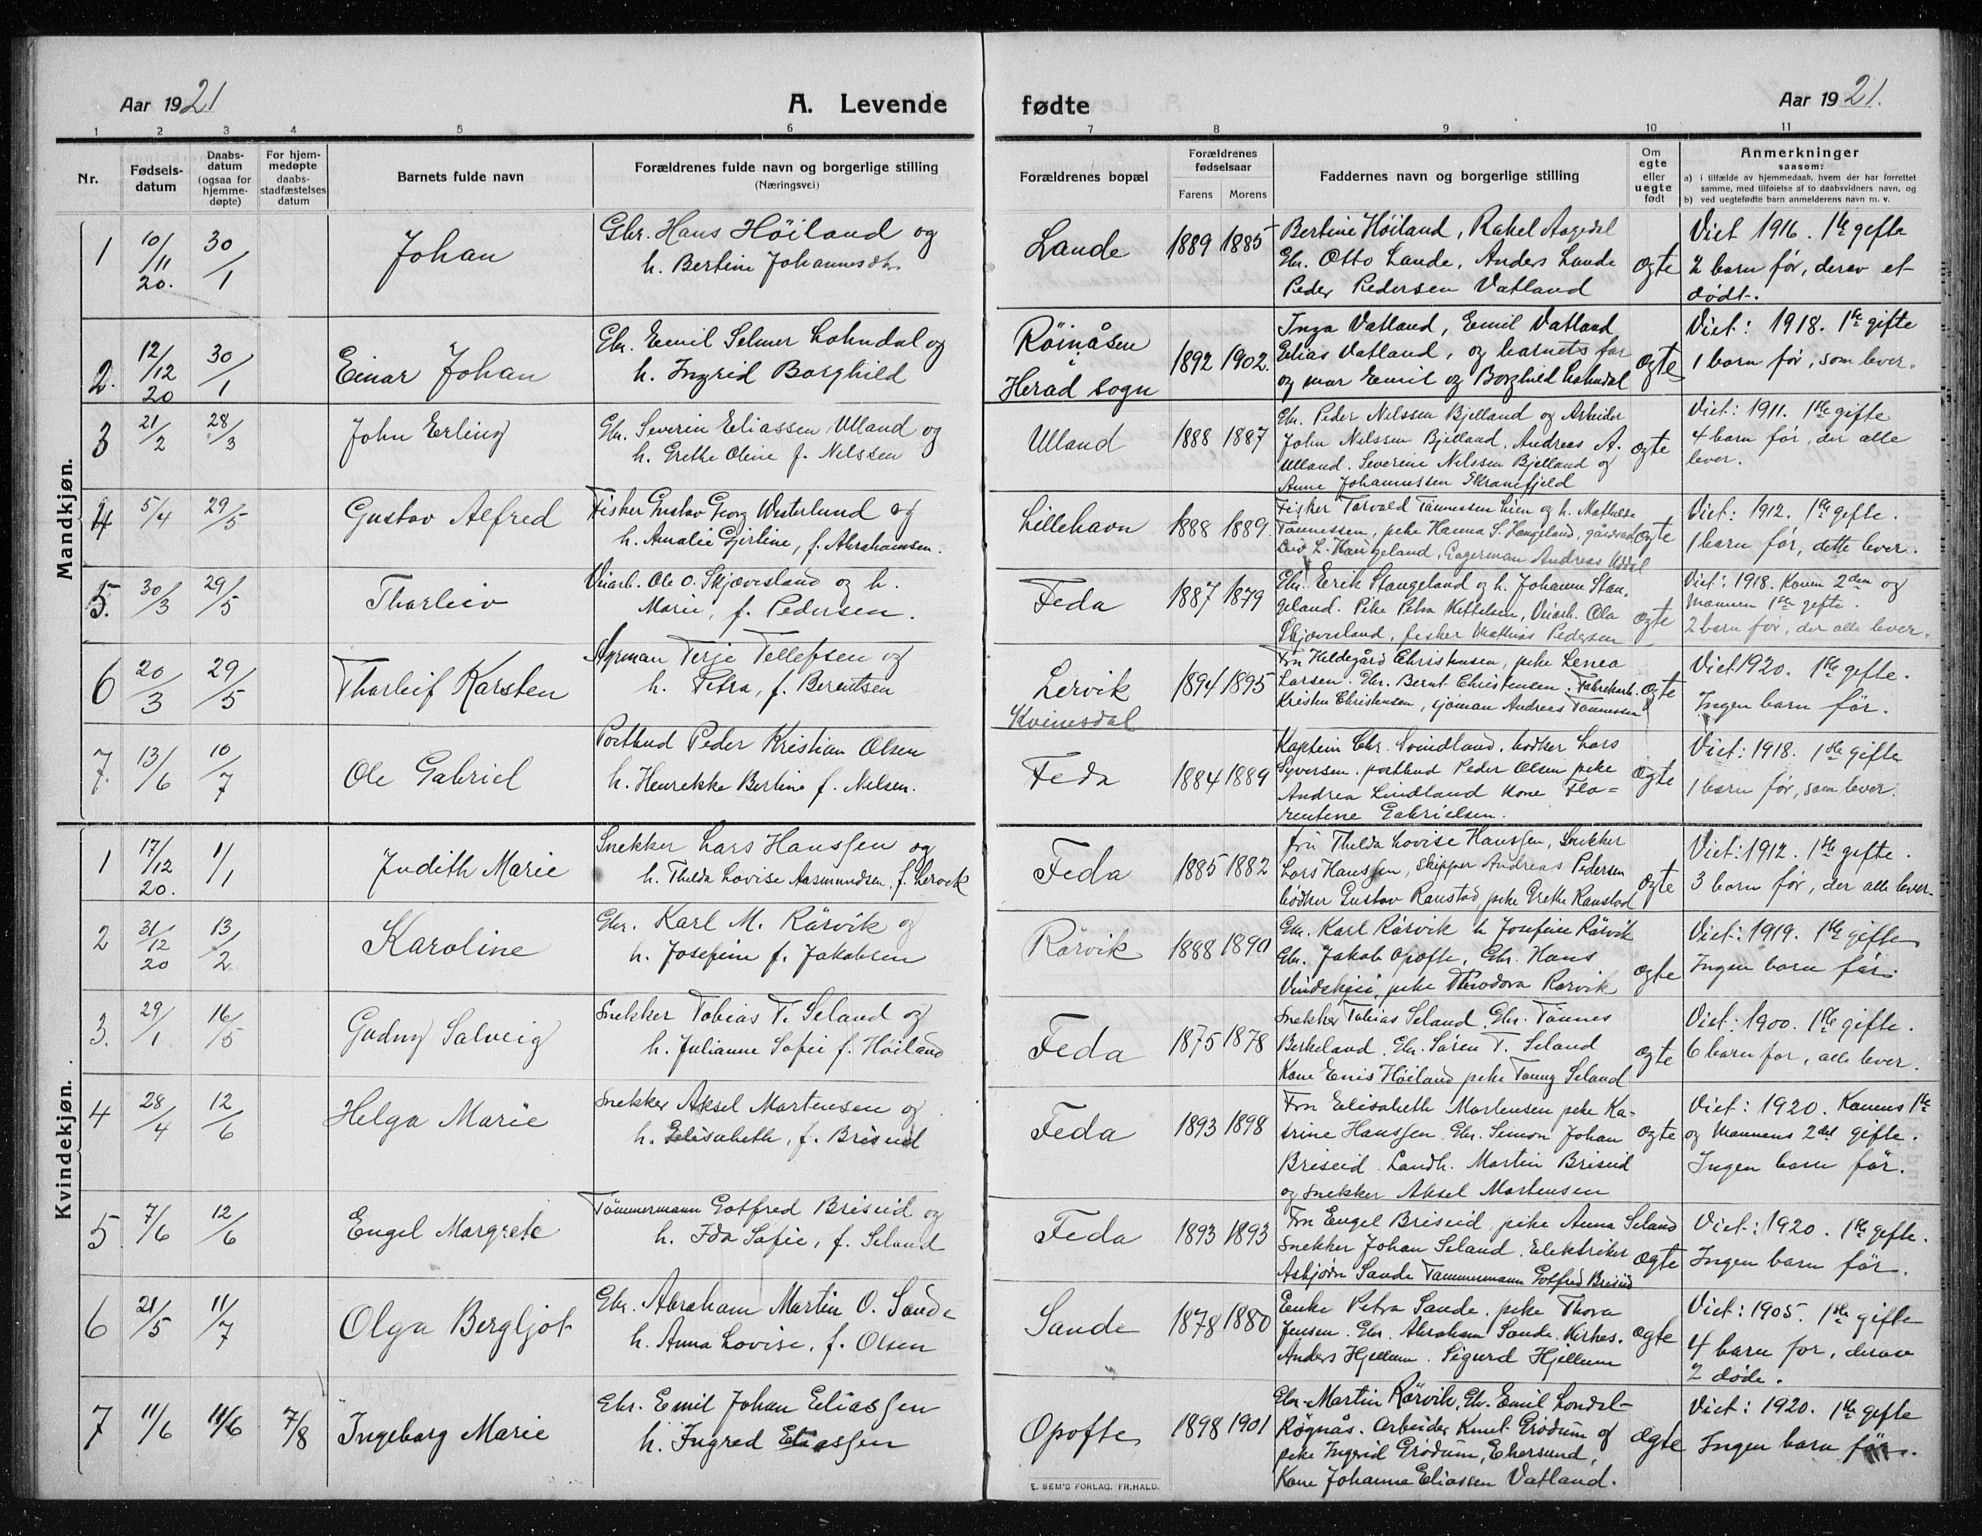 Aar 1921
A. Levende
1 2 3 4 5 6
Nr.
Fødsels-
datum
Daabs-
datum
(ogsaa for
hjemme-
døpte)
For hjem-
medøpte
daabs-
stadfæstelses
datum
Barnets fulde navn
Forældrenes fulde navn og borgerlige stilling
(Næringsvei)
fødte
Aar 1921.
7 8 9 10 11
Forældrenes bopæl
Forældrenes
fødselsaar
Farens Morens
Faddernes navn og borgerlige stilling
Om
egte
eller
uegte
født
Anmerkninger
saasom:
a) i tilfælde av hjemmedaab, hvem der har forrettet
samme, med tilføielse af to daabsvidners navn, og
b) ved uegtefødte barn anmelderens navn m. v.
Mandkjøn.
1 10/11 20. 30/1 Johan
Gbr. Hans Höiland og
h. Bertine Johannesdtr
Lande 1889 1885
Bertine Höiland, Rakel Aagedal
Gbr. Otto Lande, Anders Lande
Peder Pedersen Vatland
ogte
Viet 1916. 1ste gifte
2 barn før, derav et
dødt.
2. 12/12 20 30/1 Einar Johan
Gbr. Emil Selmer Lohndal og
h. Ingrid Borghild
Röinåsen
i
Herad sogn
1892 1902.
Inga Vatland, Emil Vatland
Elias Vatland, og barnets far
og mor Emil og Borghild Lohndal
ogte
Viet: 1918. 1ste gifte
1 barn før, som lever.
3 21/2 28/3 John Erling
Gbr. Severin Eliassen Ulland og
h. Grethe Oline f. Nilssen
Ulland 1888 1887
Gbr. Peder Nilssen Bjelland og Arbeider
John Nilssen Bjelland. Andreas A.
Ulland. Severine Nilssen Bjelland og
Anne Johannessen
ogte
Viet: 1911. 1ste gifte
4 barn før, der alle
lever.
4 5/4 29/5 Gustav Alfred
Fisker Gustav Georg Westerlund og
h. Amalie Gjertine, f. Abrahamsen.
Lillehavn 1888 1889.
Fisker Torvald Tönnessen Lien og h. Mathilde
Tönnessen, pike Hanna S. Haugeland,
L. Haugeland, Lagerman Andreas
ogte
Viet: 1912. 1ste gifte.
1 barn før, dette lever.
5. 30/3 29/5 Thorleiv
Veiarb. Ole O. Skjævesland og h.
Marie, f. Pedersen.
Feda 1887 1879
Gbr. Erik Stangeland og h. Johanne Stan-
geland. Pike Petra Kittelsen, Veiarb. Ola
Skjævesland, fisker Mathias Pedersen
ogte
Viet: 1918. Konen 2den og
Mannen 1ste gifte.
2 barn før, der alle lever.
6 20/3 29/5 Thorleif Karsten
Terje Tellefsen og
h. Petra, f. Berentsen
Lervik
Kvinesdal
1894 1895
Fru Hildegård Christensen, pike Lenea
Larsen. Gbr. Bernt Christensen. Fabrikarb.
Kristen Christensen, sjöman Andreas Tönnesen
ogte
Viet 1920. 1ste gifte.
Ingen barn før.
7. 13/6 10/7 Ole Gabriel
Postbud Peder Kristian Olsen
h. Henrekke Bertine f. Nelsen.
Feda 1884 1889
Kaptein Chr. Svindland. bödker Lars
Syversen. postbud Peder Olsen pike
Andrea Lindland kone Flo=
rentine Gabrielsen.
ogte
Viet: 1918. 1ste gifte
1 barn før, som lever.
Kvindekjøn.
1 17/12 20. 1/1 Judith Marie
Snekker Lars Hanssen og
h. Thilda Lovise Aasmundsen, f. Lervik
Feda 1885 1882
fru Thilda Lovise Hanssen, Snekker
Lars Hanssen, skipper Andreas Pedersen
bödker Gustav Ranstad, pike Grethe Ranstad
ogte
Viet: 1912. 1ste gifte.
3 barn før, der alle lever.
2 31/12 20 13/2 Karoline
Gbr. Karl M. Rörvik og
h. Josefine f. Jakobsen
Rörvik 1888 1890
Gbr. Karl Rörvik h Josefine Rörvik
Gbr. Jakob Opofte, Gbr. Hans
pike Theodora Rörvik
ogte
Viet: 1919. 1ste gifte
Ingen barn før.
3. 29/1 16/5 Gudny Salveig
Snekker Tobias T. Seland og
h. Julianne Sofie f. Höiland
Feda 1875 1878
Snekker Tobias Seland, Gbr. Tönnes
Berkeland, Gbr. Sören T. Seland
Kone Enis Höiland pike Tonny Seland
ogte
Viet: 1900. 1ste gifte.
6 barn før, alle lever.
4 28/4 12/6 Helga Marie
Snekker Aksel Mortensen og
h. Elisabeth, f. Briseid
Feda 1893 1898
Fru Elisabeth Mortensen pike Ka-
trine Hanssen, Gbr. Simon Johan
Briseid. Landh. Martin Briseid
og Snekker Aksel Mortensen
ogte
Viet: 1920. Konens 1ste
og Mannens 2det gifte.
Ingen barn før.
5 7/6 12/6 Engel Margrete
Tömmermann Gotfred Briseid og
h. Ida Sofie, f. Seland
Feda 1893 1893
Fru Engel Briseid, pike Anna Seland
Snekker Johan Seland. Elektriker
Asbjörn Sande Tömmermann Gotfred Briseid
ogte
Viet: 1920. 1ste gifte.
Ingen barn før.
6 21/5 11/7 Olga Bergljot
Gbr. Abraham Martin O. Sande
h. Anna Lovise, f. Olsen
Sande 1878 1880
Enke Petra Sande. pike Thora
Jensen. Gbr. Abraham Sande. Kirkes.
Anders Hjellum. Sigurd Hjellum
ogte
Viet: 1905. 1ste gifte
4 barn før, derav
2 døde.
7 11/6 11/6 7/8 Ingeborg Marie
Gbr. Emil Johan Eliassen
h. Ingred Eliassen
Opofte 1898 1901
Gbr. Martin Rörvik, Gbr. Emil Londal-
Røgnås. Arbeider Knut Grödum og
pike Ingrid Grödum, Ekersund,
Kone Johanne Eliassen Vatland.
ogte
Viet: 1920. 1ste gifte
Ingen barn før.
E. SEM'S FORLAG, FR.HALD.